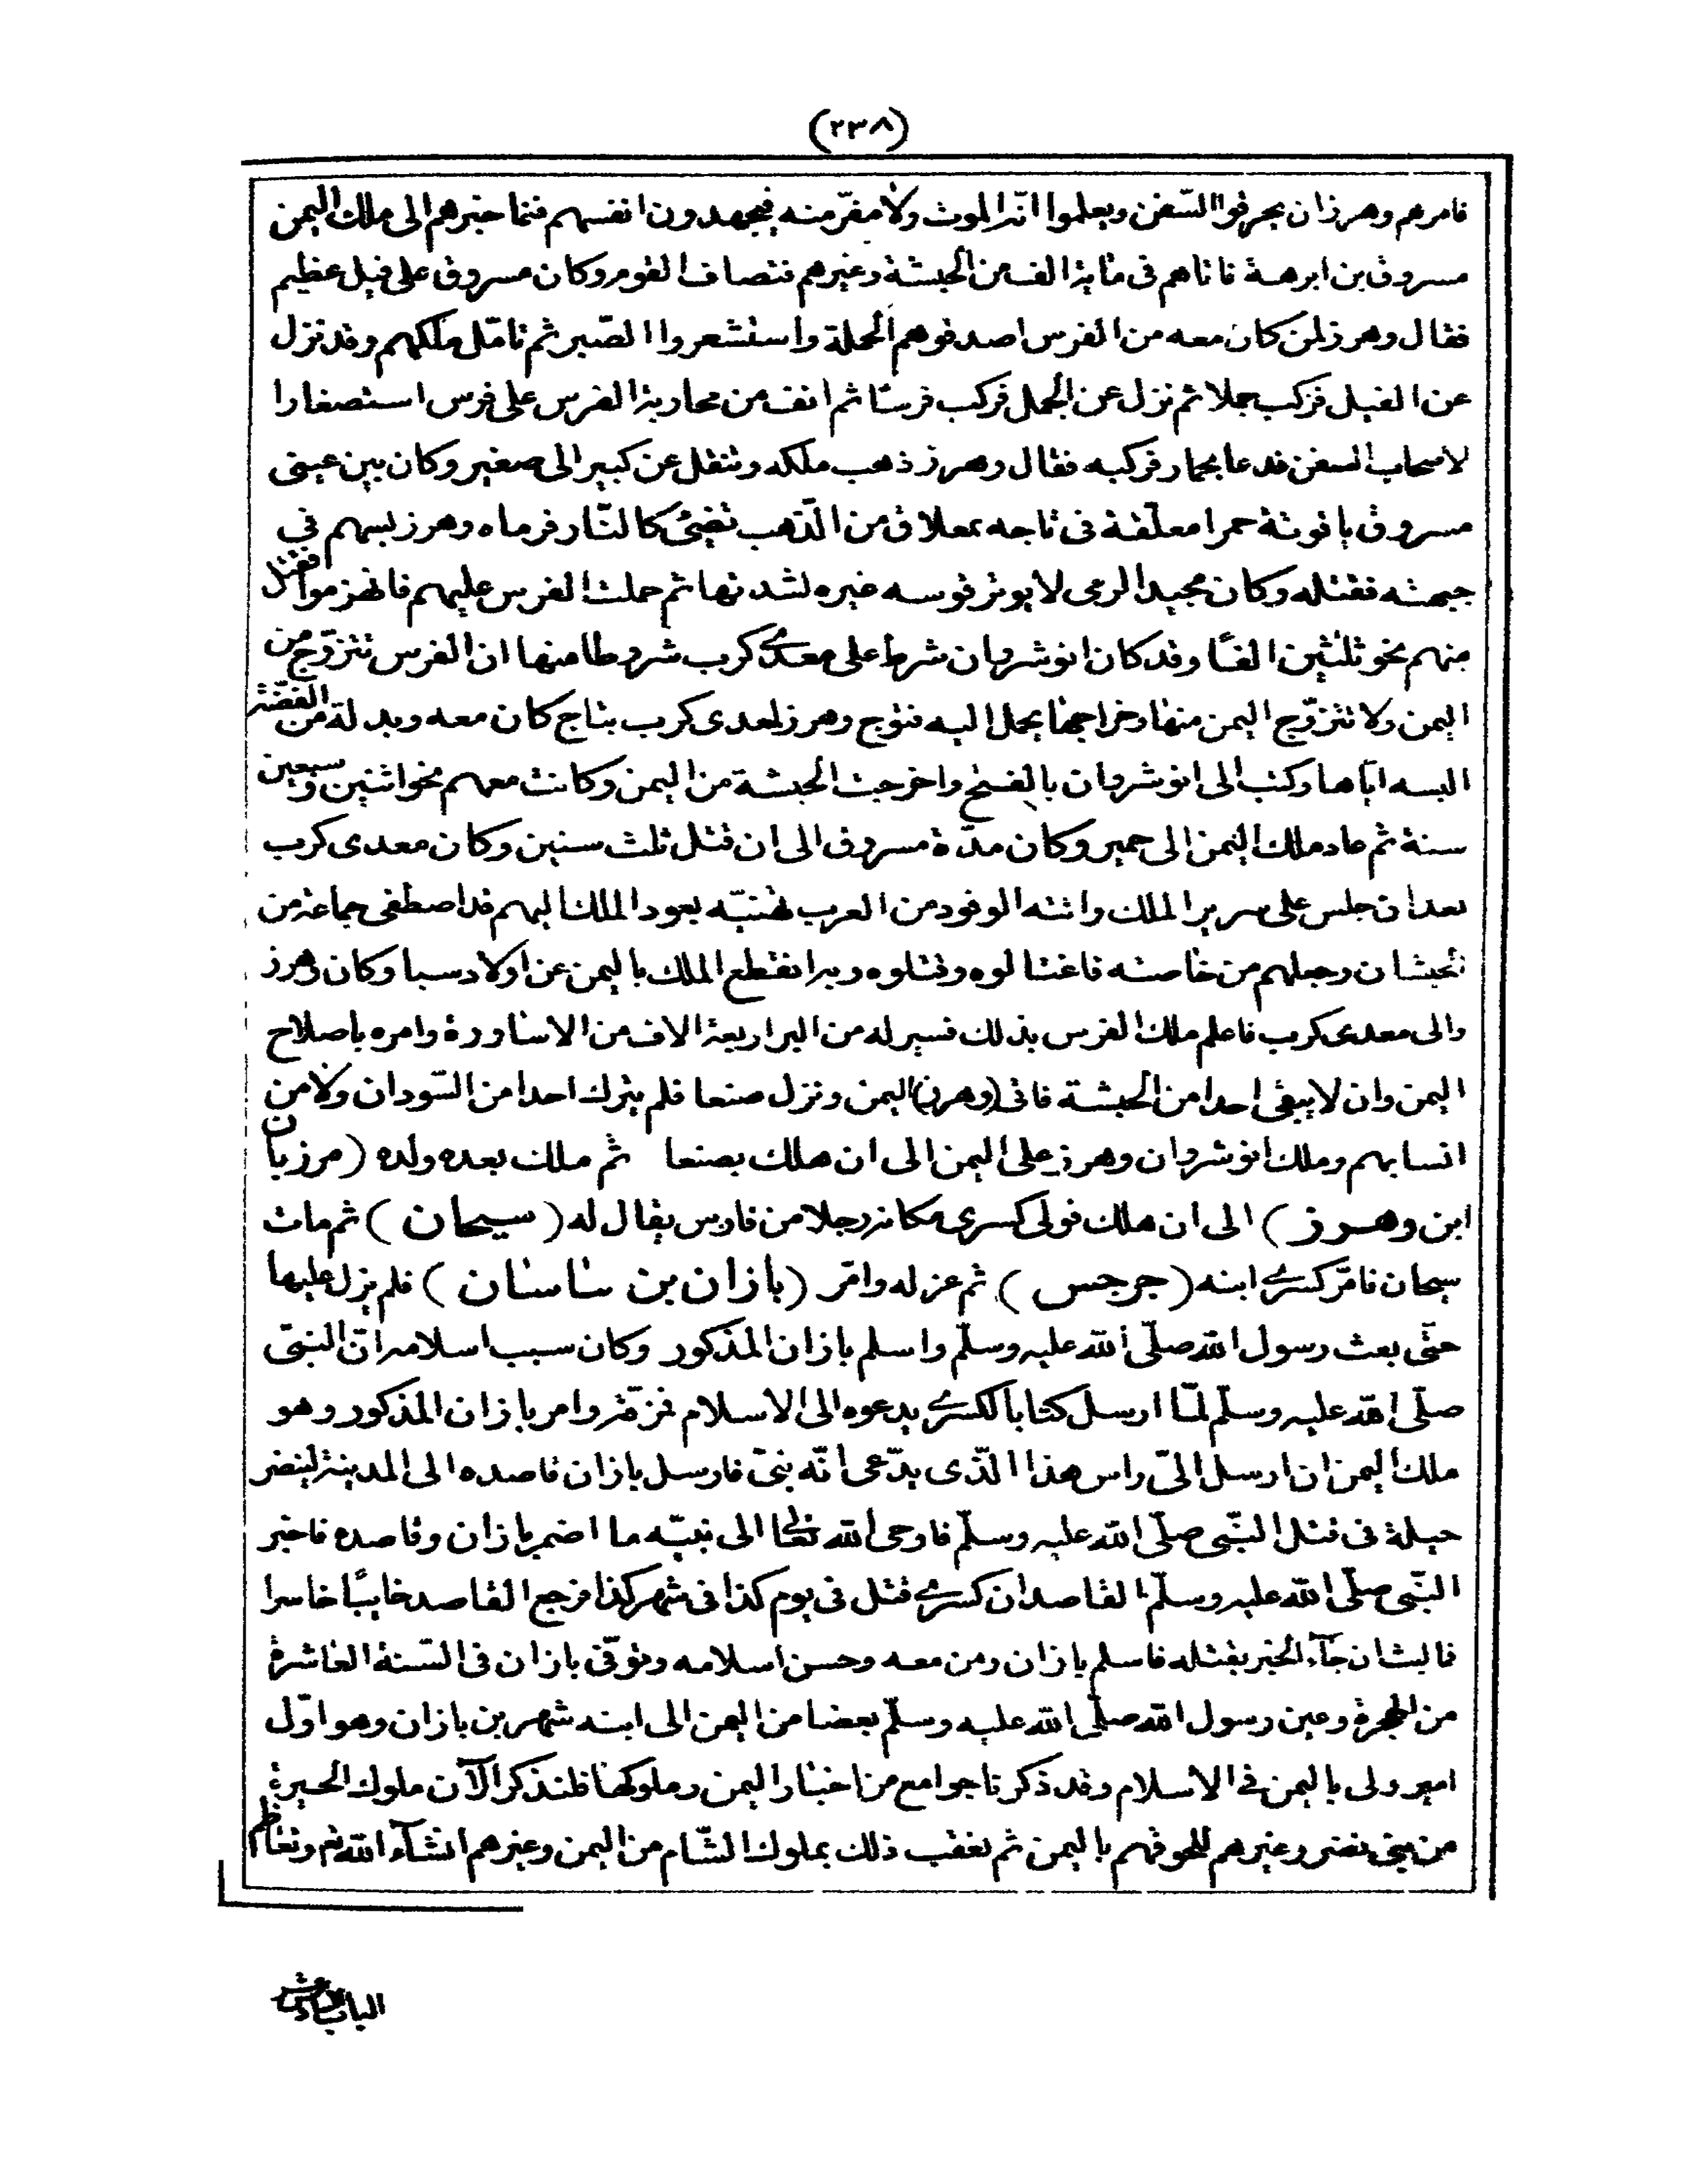 (٢٣٨)
فامرهم وهرزان يحرقوا السّفن ويعلموا انّه الموت ولا مفرّ منه فيجهدون انفسهم فنما خبرهم الى ملك اليمن
مسروق بن ابرهة فاتاهم فى مائة الف من الحبشة وغيرهم فتصاف القوم وكان مسروق على فيل عظيم
فقال وهرز لمن كان معه من الفرس اصدقوهم الحملة واستشعروا الصّبر ثم تامّل ملكهم وقد نزل
عن الفيل فركب جملا ثم نزل عن الجمل فركب فرسًا ثم انف من محاربة الفرس على فرس استصغارا
لاصحاب السفن فدعا بحمار فركبه فقال وهرز ذهب ملكه وتنقل عن كبير الى صغير وكان بين عينى
مسروق ياقوتة حمرا معلّقة فى تاجه بمعلاق من الذّهب تضىئ كالنّار فرماه وهرز بسهم فى
جبهته فقتله وكان مجيد الرمى لا يوتر قوسه غيره لشدتها ثم حملت الفرس عليهم فانهزموا فقتل
منهم نحو ثلثين الفًا وقد كان انوشروان شرط على معدى كرب شروطا منها ان الفرس تتزوّج من
اليمن ولا تتزوّج اليمن منها وخراجها يحمل اليه فتوّج وهرز لمعدى كرب بتاج كان معه وبدلة من الفضّة
البسه اياها وكتب الى انوشروان بالفتح واخرجت الحبشة من اليمن وكانت معهم نحو اثنين وسبعين
سنة ثم عاد ملك اليمن الى حمير وكان مدّة مسروق الى ان قتل ثلث سنين وكان معدى كرب
بعد ان جلس على سرير الملك واتته الوفود من العرب تهنيّه بعود الملك اليهم قد اصطفى جماعة من
الحبشان وجعلهم من خاصته فاغتالوه وقتلوه وبه انقطع الملك باليمن عن اولاد سبا وكان وهرز
والى معدى كرب فاعلم ملك الفرس بذلك فسير له من البر اربعة الاف من الاساورة وامره باصلاح
اليمن وان لا يبقى احدا من الحبشة فاتى (وهرز) اليمن ونزل صنعا فلم يترك احدا من السّودان ولا من
انسابهم وملك انوشروان وهرز على اليمن الى ان هلك بصنعا ثم ملك بعده ولده (مرزبان
ابن وهرز) الى ان هلك فولى كسرى مكانه رجلا من فارس يقال له (سيحان) ثم مات
سيحان فامّر كسرى ابنه (جرجس) ثم عزله وامّر (بازان بن ساسان) فلم يزل عليها
حتّى بعث رسول الله صلّى الله عليه وسلّم واسلم بازان المذكور وكان سبب اسلامه انّ النبىّ
صلّى الله عليه وسلّم لمّا ارسل كتابا لكسرى يدعوه الى الاسلام فمزّقه وامر بازان المذكور وهو
ملك اليمن ان ارسل الىّ راس هذا الّذى يدّعى انّه نبىّ فارسل بازان قاصده الى المدينة لينضر
حيلة فى قتل النبّى صلّى الله عليه وسلّم فاوحى الله تعالى الى نبيّه ما اضمر بازان وقاصده فاخبر
النبّى صلّى الله عليه وسلّم القاصد ان كسرى قتل فى يوم كذا فى شهر كذا فرجع القاصد خايبًا خاسرا
فالبث ان جآء الخبر بقتله فاسلم بازان ومن معه وحسن اسلامه وتوفّى بازان فى السّنة العاشرة
من الهجرة وعين رسول الله صلّى الله عليه وسلّم بعضا من اليمن الى ابنه شهر بن بازان وهو اوّل
امير ولى باليمن فى الاسلام وقد ذكرنا جوامع من اخبار اليمن وملوكها فلنذكر الآن ملوك الحيرة
من بنى نضر وغيرهم للحوقهم باليمن ثم نعقب ذلك بملوك الشّام من اليمن وغيرهم انشآء الله
الباب السادس عشر